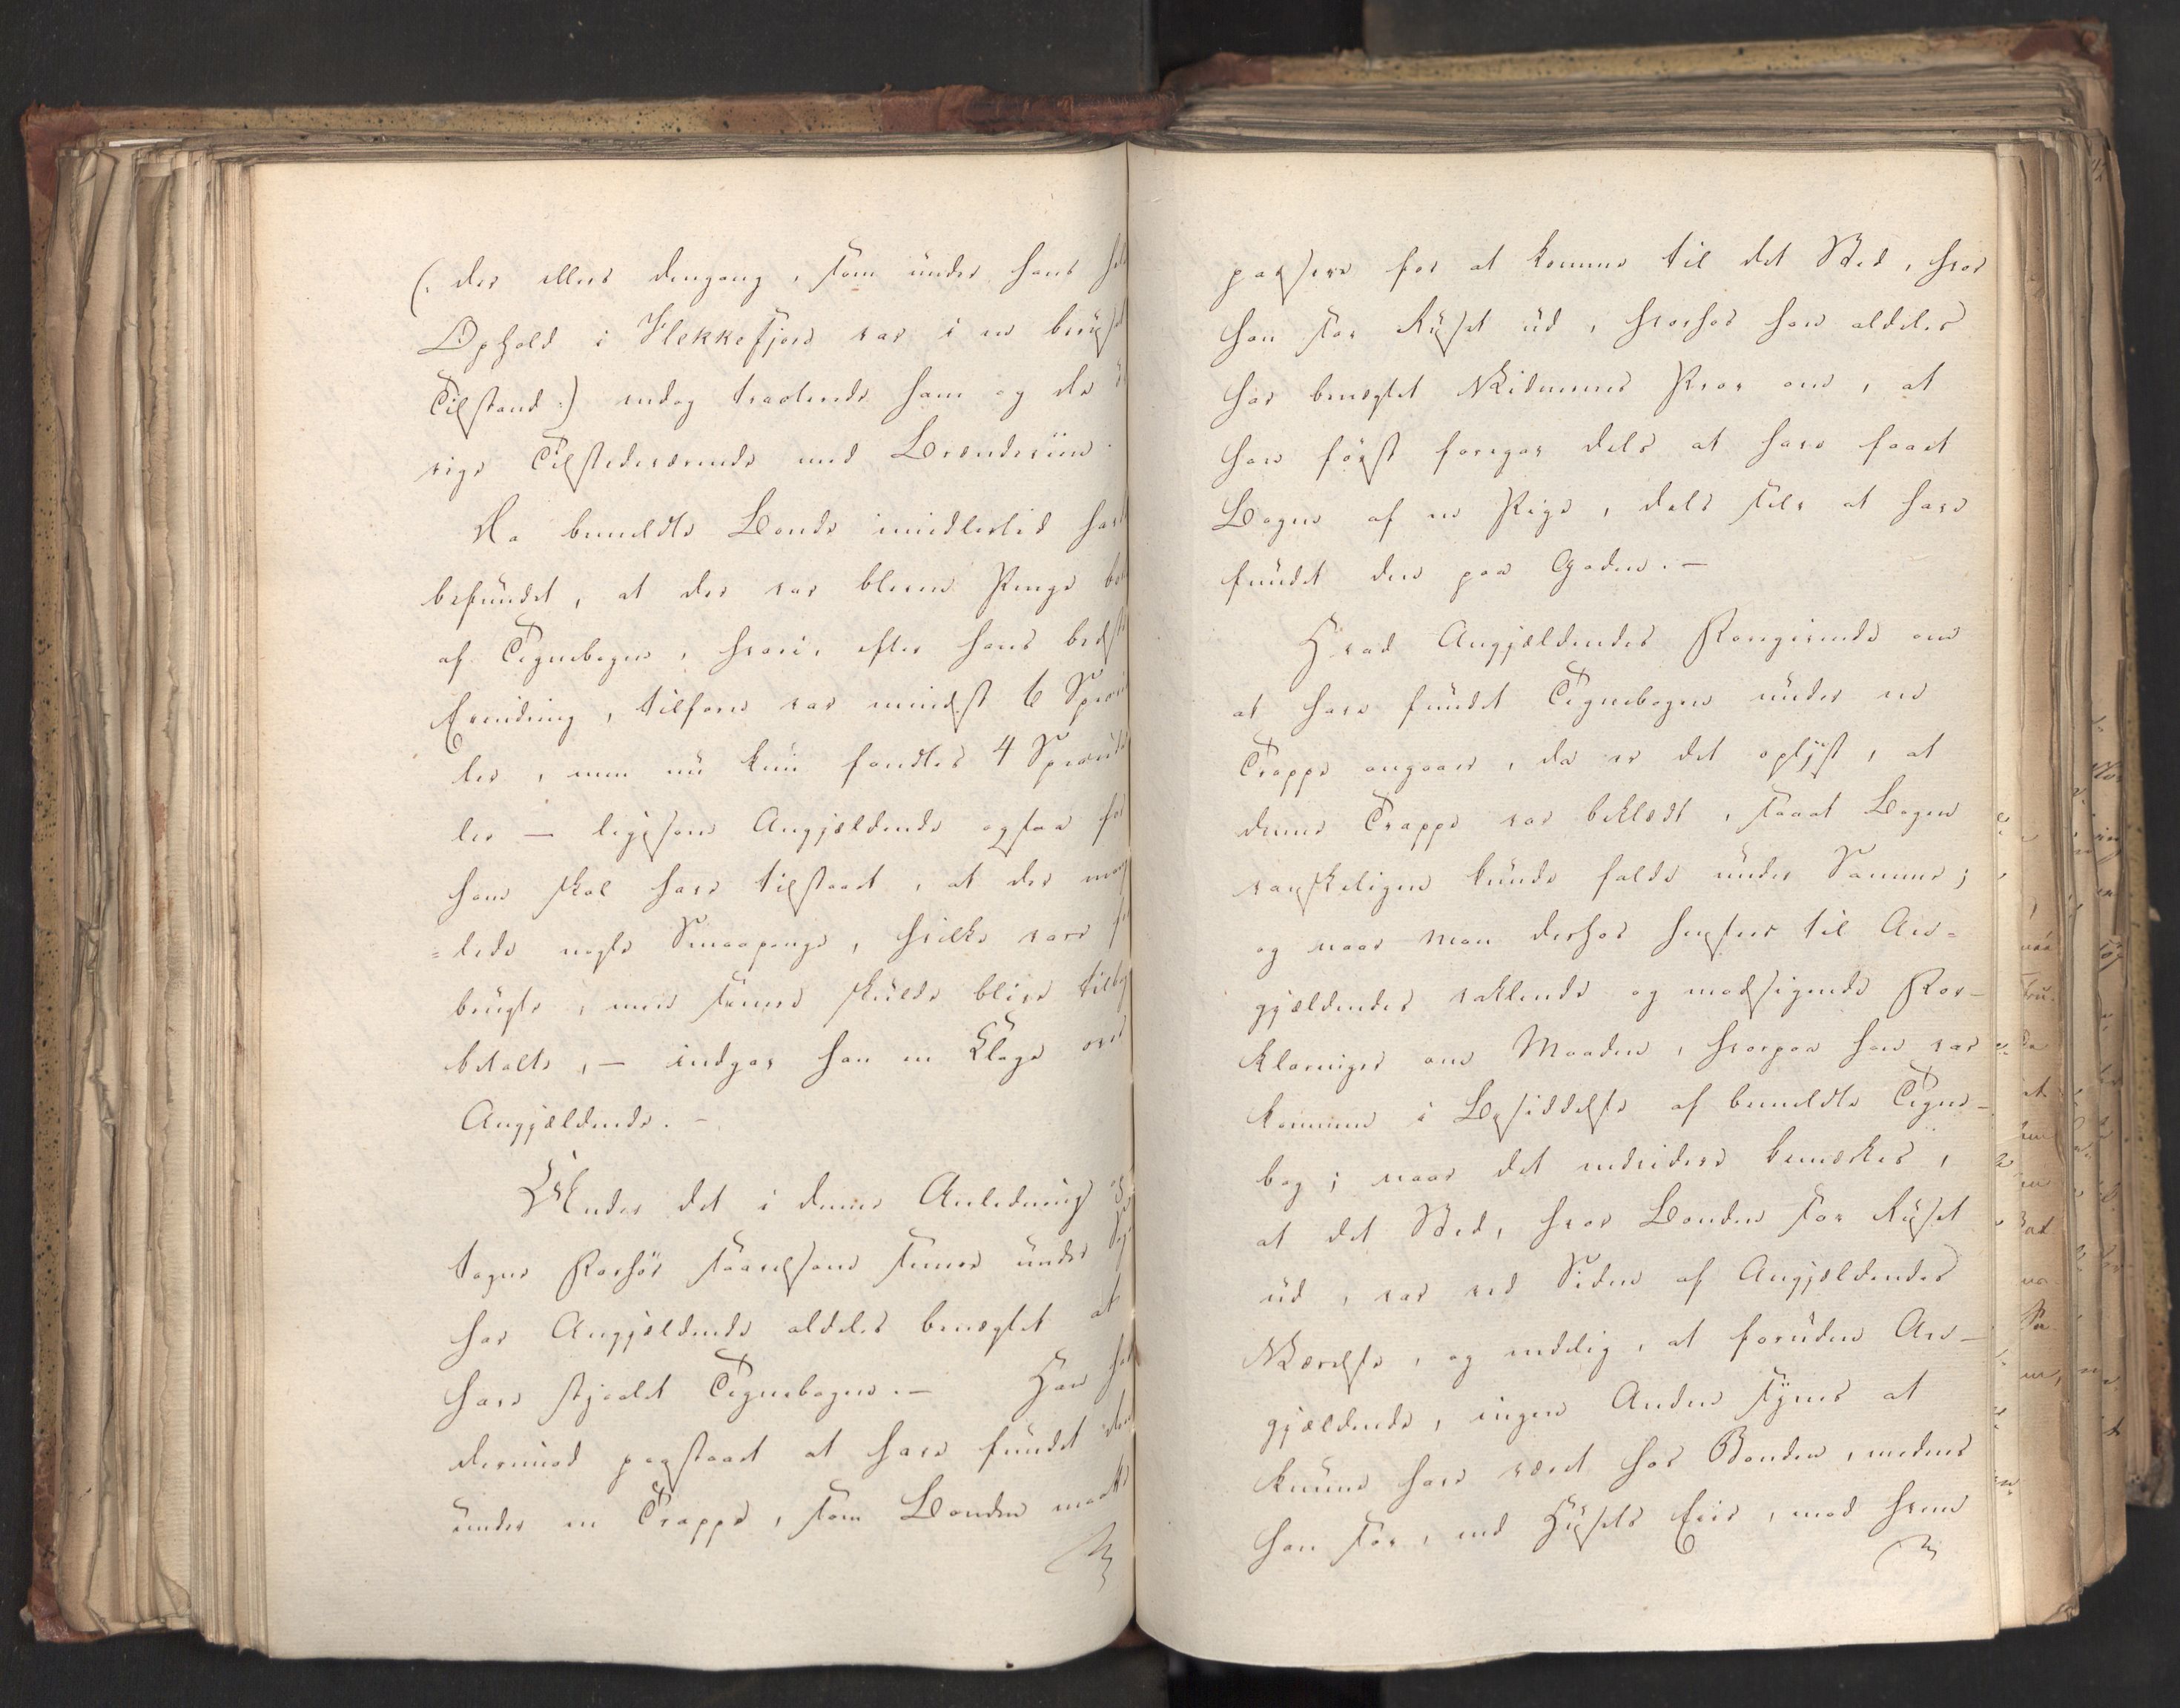 (: der ellers dengang, som under hans hele
Ophold i Flekkefjord var i en beruset
Tilstand :) endog tracterede ham og de ø
vrige Tilstedeværende med Brændeviin.
Da bemeldte Bonde imidlertid havde
befundet, at der var bleven Penge borte
af Tegnebogen, hvori, efter hans bedste
Erindring, tilforn var mindst 6 Specie
ler, men nu kun fandtes 4 Specied
ler — ligesom Angjældende ogsaa for
ham skal have tilstaaet, at der mang
=lede nogle Smaapenge, hvilke vare
brugte, men somme skulde blive tilbage
betalte, — indgav han en Klage over
Angjældende. —
Under det i denne Anledning op
tagne Forhør saavelsom senere under
har Angjældende aldeles benægtet at
have stjaalet Tegnebogen. — Han har
derimod paastaaet at have fundet den
under en Trappe, som Bonden maatte
passere for at komme til det Sted, hvor
han sov Ruset ud, hvorhos han aldeles
har benægtet Vidnernes Prov om, at
han først foregav dels at have faaet
Bogen af en Pige, dels selv at have
fundet den paa Gaden. —
Hvad Angjældendes Foregivende om
at have fundet Tegnebogen under en
Trappe angaaer, da er det oplyst, at
denne Trappe var beklædt, saaat Bogen
vanskeligen kunde falde under Samme;
og naar man derhos henseer til An=
gjældendes vaklende og modsigende For-
klaringer om Maaden, hvorpaa han var
kommen i Besiddelse af bemeldte Tegne-
bog; naar det endvidere bemærkes,
at det Sted, hvor Bonden sov Ruset
ud, var ved Siden af Angjældendes
Værelse, og endelig, at foruden An-
gjældende, ingen Anden synes at
kunne have været hos Bonden, medens
han sov, end Husets Eier, mod hvem